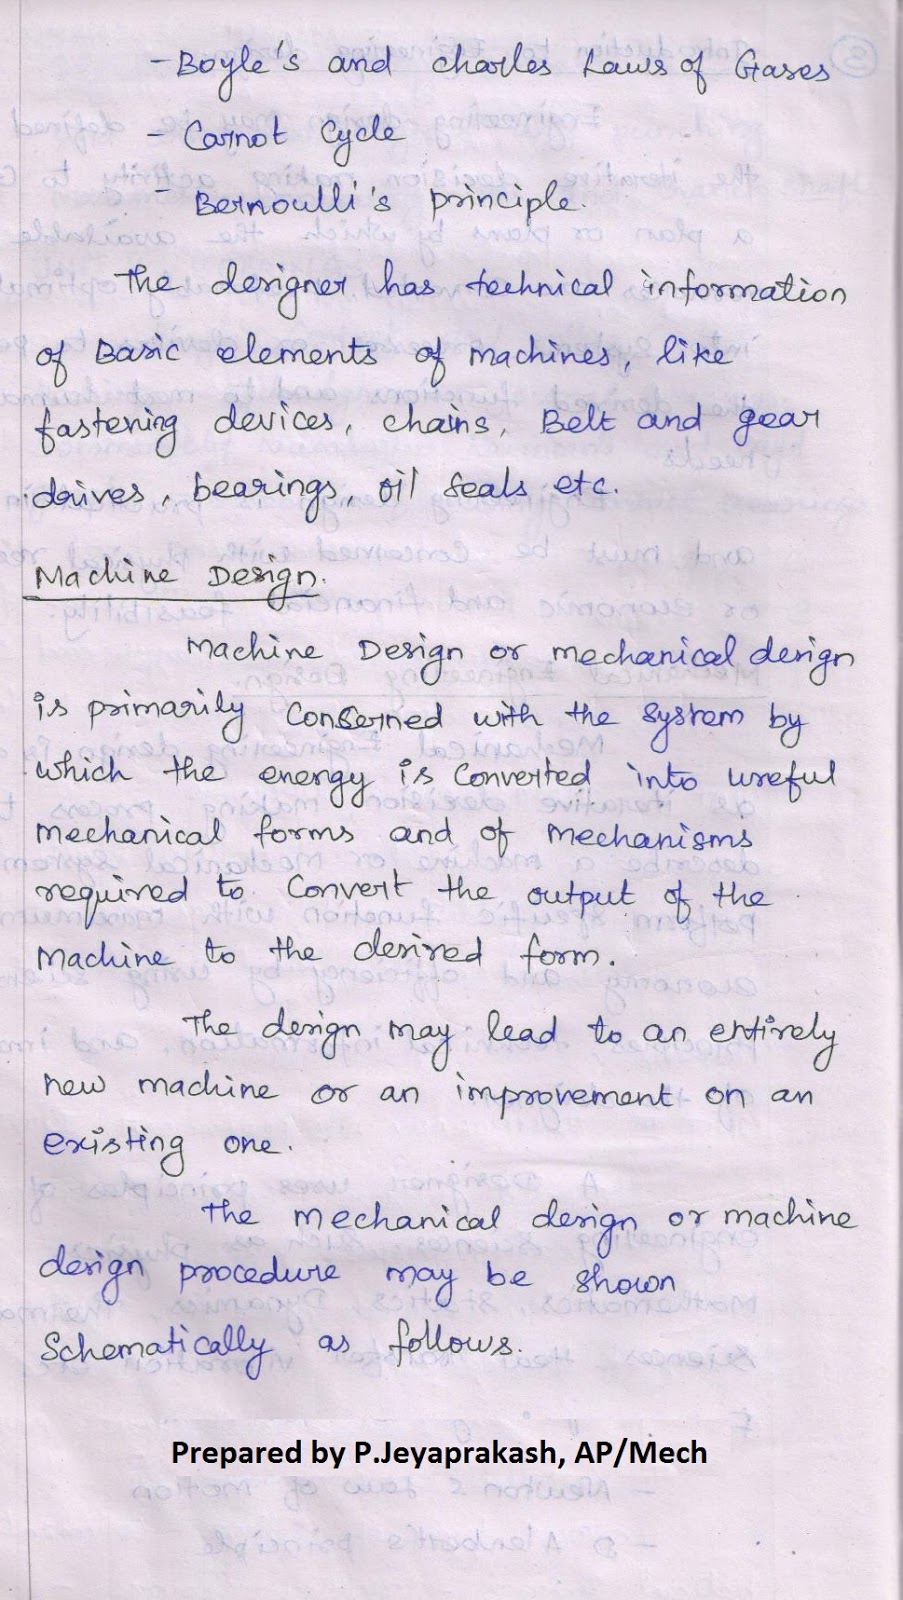 - Boyle's and charles Laws of Gases
- Carnot Cycle
- Bernoulli's principle.
The designer has technical information
of Basic elements of machines, like
fastening devices, chains, Belt and gear
drives, bearings, oil seals etc.
Machine Design.
Machine Design or mechanical design
is primarily Conserned with the system by
which the energy is Converted into useful
mechanical forms and of mechanisms
required to Convert the output of the
machine to the desired form.
The design may lead to an entirely
new machine or an improvement on an
existing one.
The mechanical design or machine
design procedure may be shown
Schematically as follows.
Prepared by P.Jeyaprakash, AP/Mech